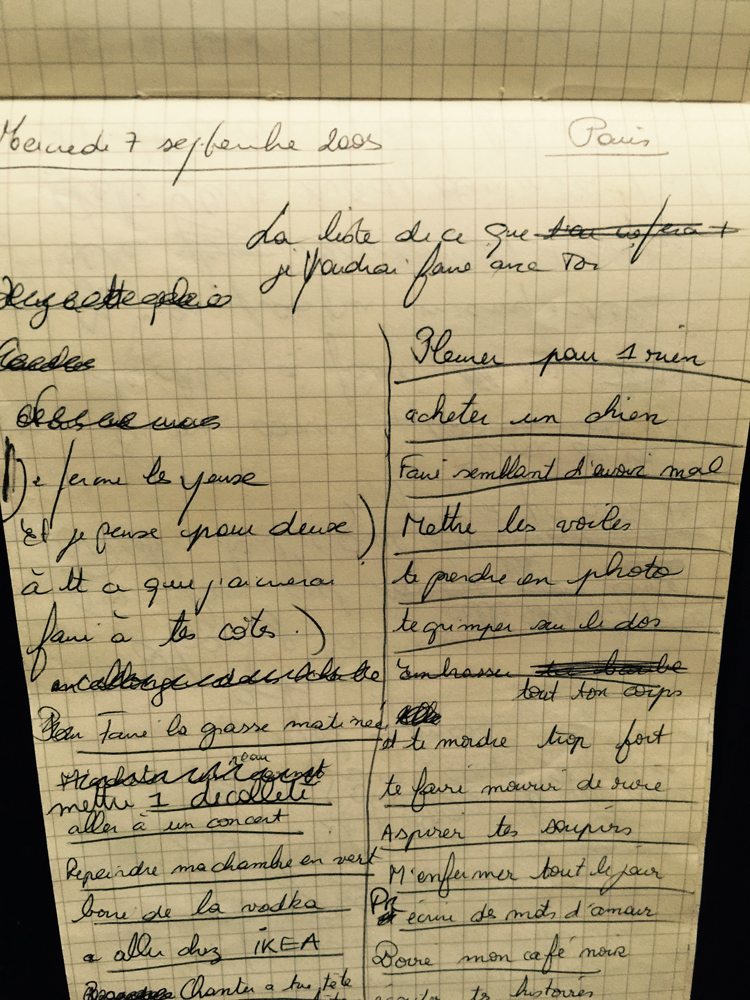 Mercredi 7 septembre 2005
Paris
La liste de ce que
je voudrai faire avec Toi
Je ferme les yeuse
Et je pense pour deux
à tt ce que j'aimerai
faire à tes côtés.)
Faire la grasse matinée
mettre 1 décolleté
aller à un concert
Repeindre ma chambre en vert
boire de la vodka
aller chez IKEA
Chanter a tue tête
Pleurer pour 1 rien
acheter un chien
Faire semblant d'avoir mal
Mettre les voiles
te prendre en photo
te grimper sur le dos
Embrasser
tout ton corps
et te mordre trop fort
te faire mourir de rire
Aspirer tes soupirs
M'enfermer tout le jour
Pr écrire des mots d'amour
Boire mon café noir
écouter tes histoires